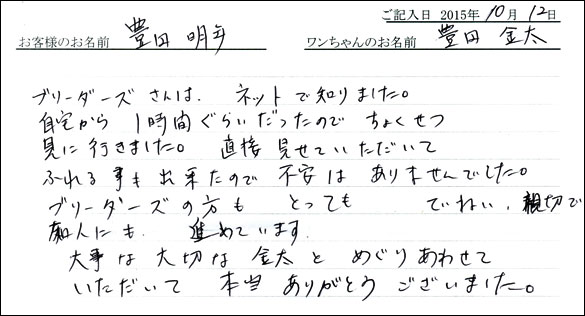 ご記入日 2015年 10月 12日
お客様のお名前 豊田 明年 ワンちゃんのお名前 豊田 金太
ブリーダーズさんは、ネットで知りました。
自宅から 1時間ぐらいだったので ちょくせつ
見に行きました。 直接見せていただいて
ふれる事も出来たので 不安は ありませんでした。
ブリーダーズの方も とっても ていねい、親切で
知人にも、 進めています。
大事な 大切な 金太と めぐりあわせて
いただいて 本当 ありがとう ございました。